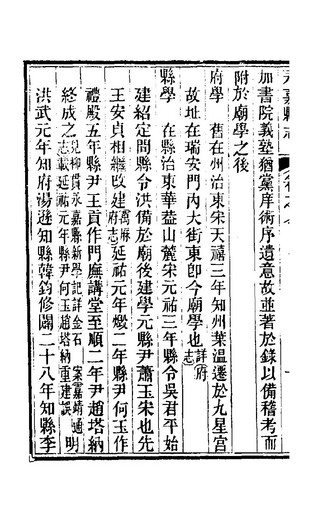 加書院義塾猶黨庠術序遺意故並著於錄以備稽考而
附於廟學之後
府學　舊在州治東宋天禧三年知州葉温遷於九星宮
故址在瑞安門内大街東卽今廟學也詳府志
縣學　在縣治東華蓋山麓宋元祐三年縣令吳君平始
建紹定間縣令洪備於廟後建學元縣尹蕭玉宋也先
王安貞相繼改建萬厤府志延祐元年燬二年縣尹何玉作
禮殿五年縣尹王貢作門廡講堂至順二年尹趙塔納
終成之見柳貫永嘉縣新學記詳金石　案嘉靖通志載延祐元年縣尹何玉趙塔納重建誤明
洪武元年知府湯遜知縣韓鈞修闢二十八年知縣李